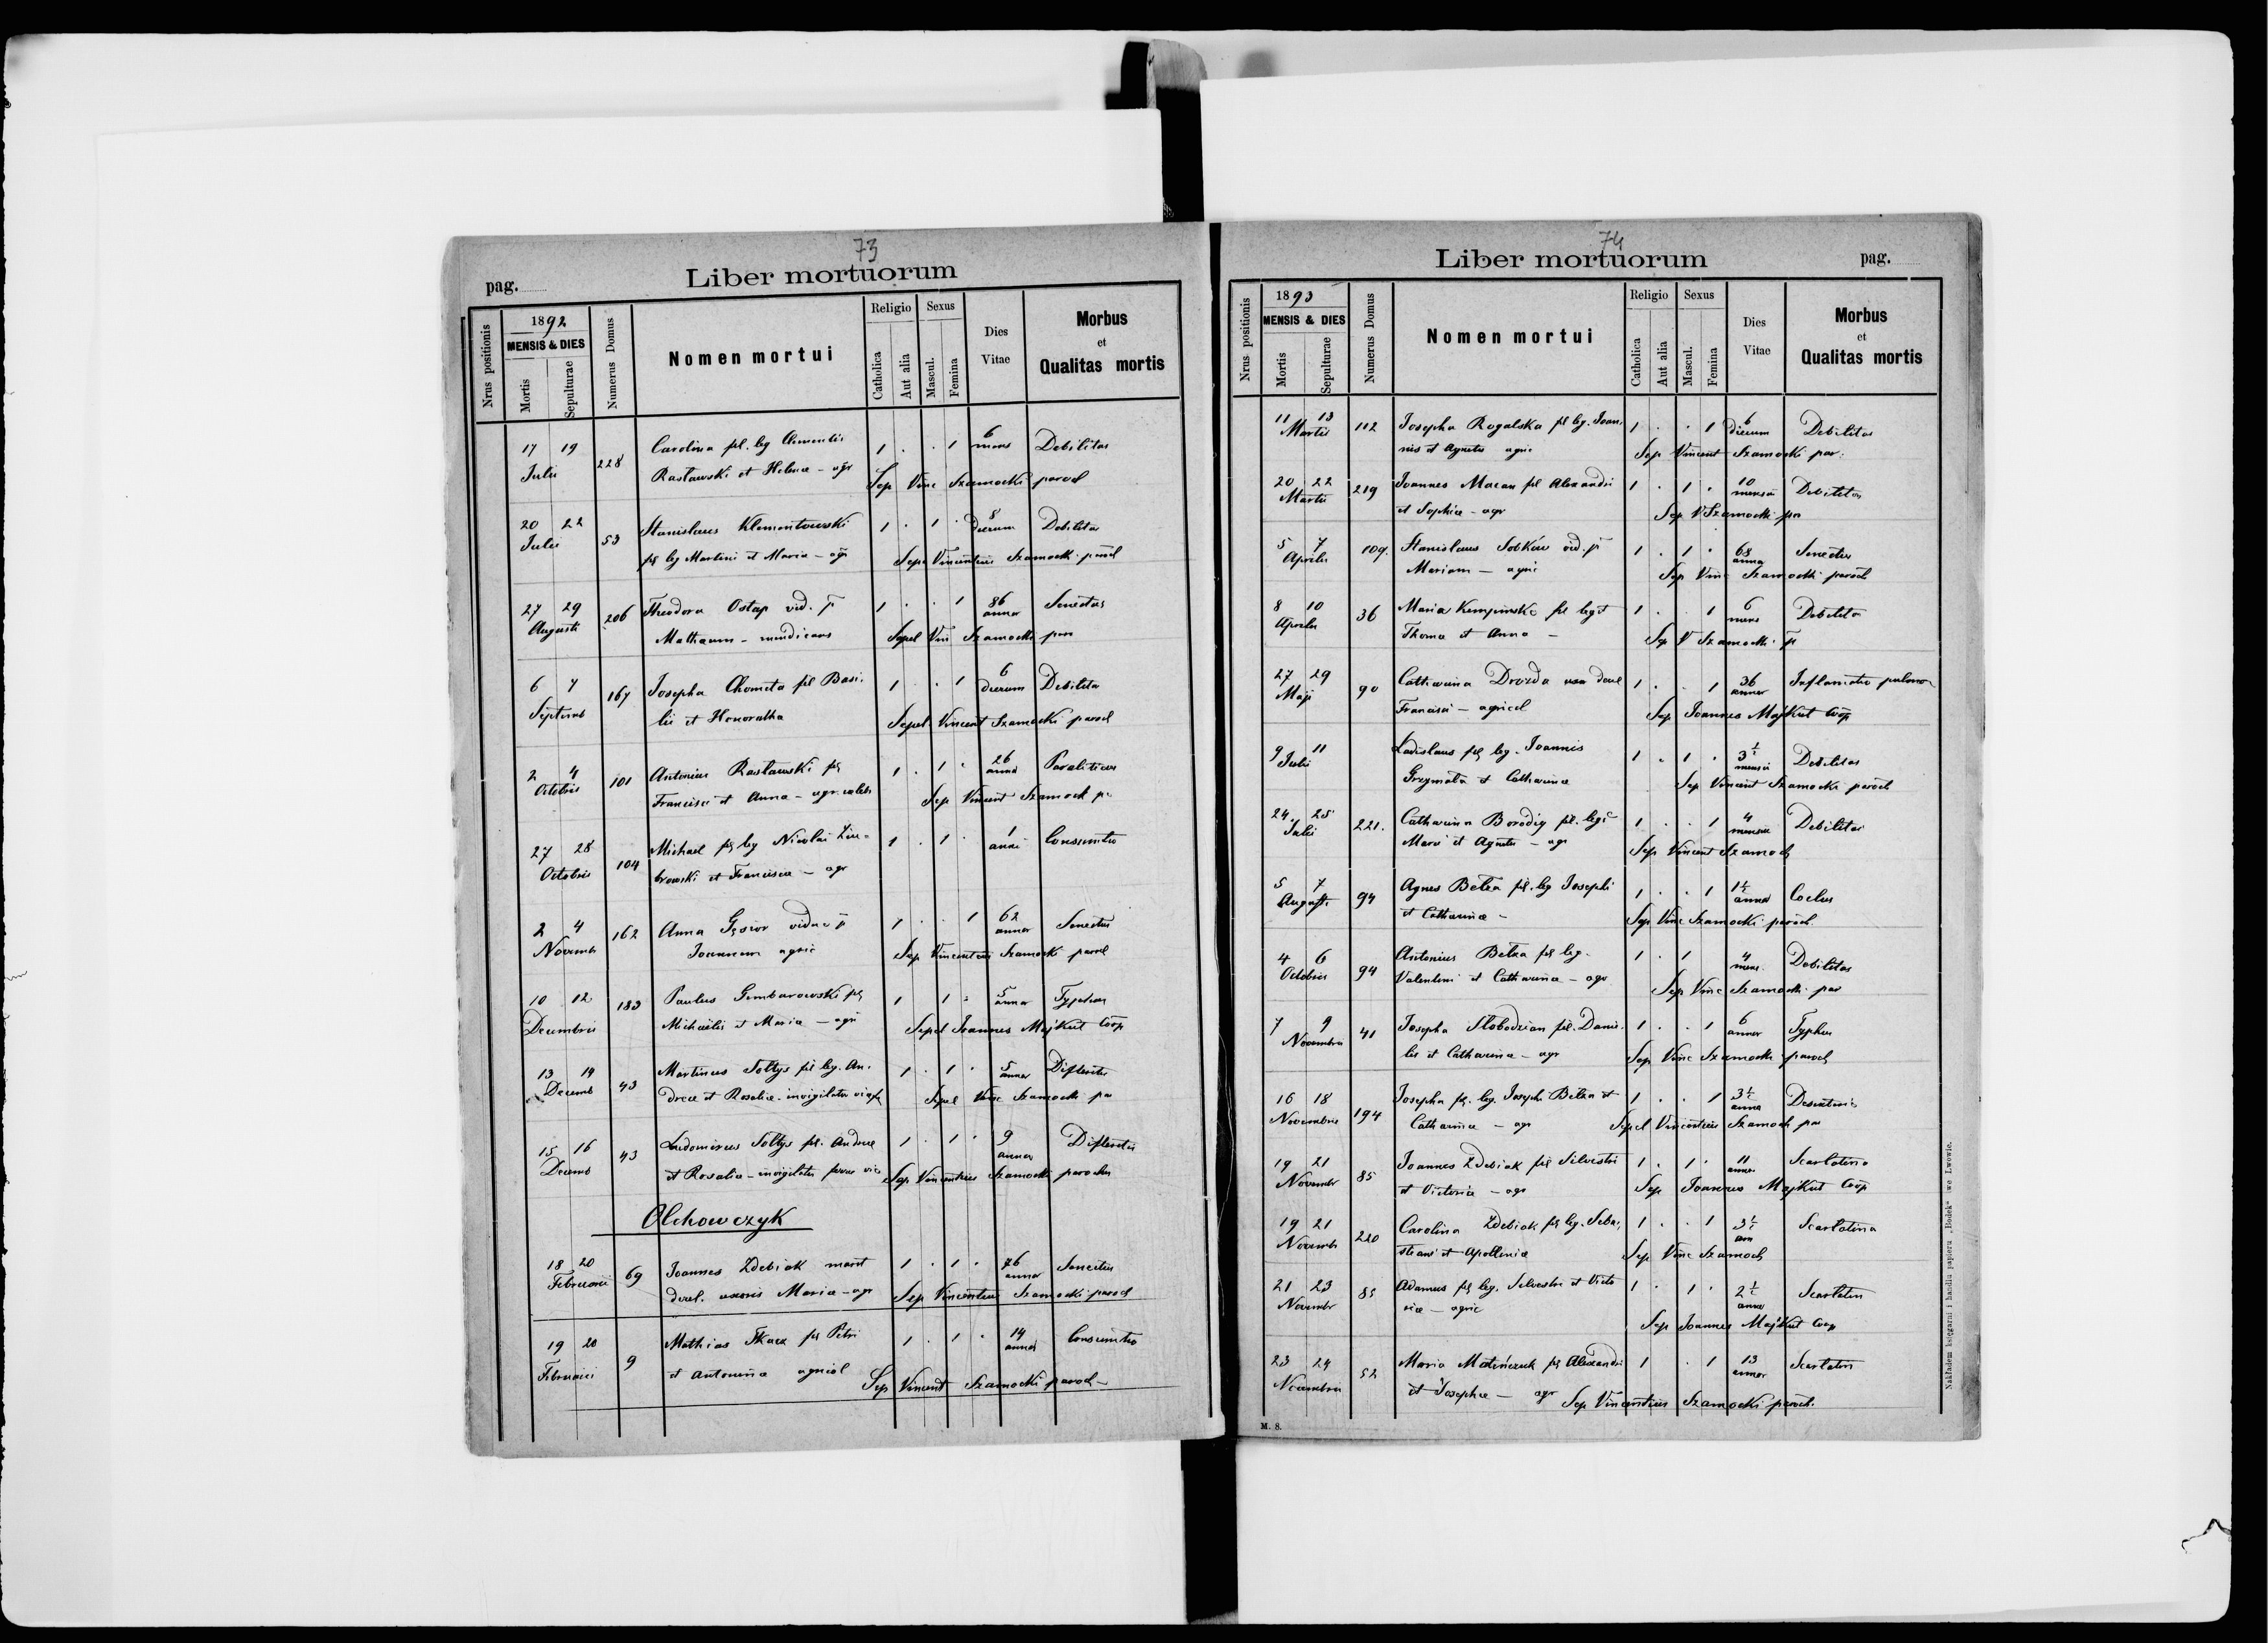 73
Liber mortuorum
pag.
Nrus positionis
1892
MENSIS & DIES
Mortis
Sepulturae
Numerus Domus
Nomen mortui
Religio
Catholica
Aut alia
Sexus
Mascul.
Femina
Dies
Vitae
Morbus
et
Qualitas mortis
17 19 Carolina fil. leg Clementis 1 . . 1 6 mens Debilitas
Julii 228 Rastawski et Helenae - agr Sep Vinc Szamocki paroch
20 22 Stanislaus Klementowski 1 . 1 . 8 dierum Debilitas
Julii 53 fil leg Martini et Maria - agr Sep Vincentius Szamocki paroch
27 29 206 Theodora Ostap vid. p 1 . . 1 86 annor Senectus
Augusti Mathaeum - mendicans Sepel Vin Szamocki par
6 7 167 Josepha Chometa fil Basi- 1 . . 1 6 dierum Debilita
Septemb lii et Honoratha Sepel Vincent Szamocki paroch
2 4 101 Antonius Rastawski fil 1 . 1 . 26 anno Paraliticus
Octobris Francisci et Anna - agr. caleb Sep Vincent Szamock p
27 28 Michael fil leg Nicolai 1 . 1 . 1 anni Consumtio
Octobris 104 browski et Francisca - agr
2 4 162 Anna Gąsior vidua p 1 . . 1 62 annor Senectus
Novemb Joannem agric Sep Vincentius Szamocki paroch
10 12 183 Paulus Gembarowski fil 1 1 . 5 annor Typhus
Decembris Michaelis et Maria - agr Sepel Joannes Majkut Coop
13 14 Martinus Soltys fil leg. An- 1 . 1 . 5 annor Difteritis
Decemb 43 dreae et Rosalia - invigilator Sepel Vinc Szamocki par
15 16 43 Ludomirus Soltys fil. Andreae 1 . 1 . 9 annor Difteritis
Decemb et Rosalia - invigilator Sep Vincentius Szamocki parochus
Olchowczyk
18 20 69 Joannes Zdebiak marit 1 . 1 . 76 annor Senectus
Februarii uxoris Maria - agr Sep Vincentius Szamocki paroch
19 20 9 Mathias Tkacz fil Petri 1 . 1 . 14 annor Consumtio
Februarii et Antonina agricol Sep Vincent Szamocki paroch -
74
Liber mortuorum
pag.
Nrus positionis
1893
MENSIS & DIES
Mortis
Sepulturae
Numerus Domus
Nomen mortui
Religio
Catholica
Aut alia
Sexus
Mascul.
Femina
Dies
Vitae
Morbus
et
Qualitas mortis
11 13 112 Josepha Rogalska fil leg. Joan- 1 . . 1 6 dierum Debilitas
Martii nis et Agnetis agric Sep Vincent Szamocki par.
20 22 219 Joannes Macan fil Alexandri 1 . 1 . 10 mensi Debilitas
Martii et Sophia - agr Sep V Szamocki par
5 7 109. Stanislaus Sobków vid. p 1 . 1 . 68 annor Senectus
Aprilis Mariam - agric Sep Vinc Szamocki paroch
8 10 36 Maria Kempinska fil leg 1 . . 1 6 mens Debilita
Aprilis Thoma et Anna - Sep V Szamocki p
27 29 90 Catharina Drozda 1 . . 1 36 annor Inflamatio pulmo
Maji Francisci - agricol Sep Joannes Majkut Coop
9 11 Ladislaus fil leg. Joannis 1 . 1 . 3½ mensi Debilitas
Julii Grzymała et Catharina Sep Vincent Szamocki paroch
24. 25 221. Catharina Borodig fil. leg 1 . . 1 4 mensi Debilitas
Julii Marci et Agnetis - agr Sep Vincent Szamock
5 7 94 Agnes Betza fil. leg Josephi 1 . . 1 1½ annor
Augusti et Catharina - Sep Vinc Szamocki paroch.
4 6 94 Antonius Betza fil leg. 1 . 1 4 mens. Debilitas
Octobris Valentini et Catharina - agr Sep Vinc Szamocki par
7 9 41 Josepha Słobodzian fil. Danie- 1 . . 1 6 annor Typhus
Novembris lis et Catharina - agr Sep Vinc Szamocki paroch
16 18 194 Josepha fil. leg. Josephi Betza et 1 . . 1 3½ anno
Novembris Catharina - agr Sepel Vincentius Szamock par
19 21 85 Joannes Zdebiak fil Silvestri 1 . 1 . 11 annor Scarlatina
Novembr et Victoria - agr Sep Joannes Majkut Coop
19 21 220 Carolina Zdebiak fil leg. Seba- 1 . . 1 3½ an Scarlatina
Novemb stiani et Apollonia Sep Vinc Szamock
21 23 85 Adamus fil leg. Silvestri et Victo 1 . 1 . 2½ annor Scarlatin
Novembr ria - agric Sep Joannes Majkut Coop
23 24 52 Maria Matińczuk fil Alexandri 1 . 1 13 annor Scarlatin
Novembris et Josepha - agr Sep Vincentius Szamocki paroch.
M. 8.
Nakładem księgarni i handlu papieru „Bodek" we Lwowie.